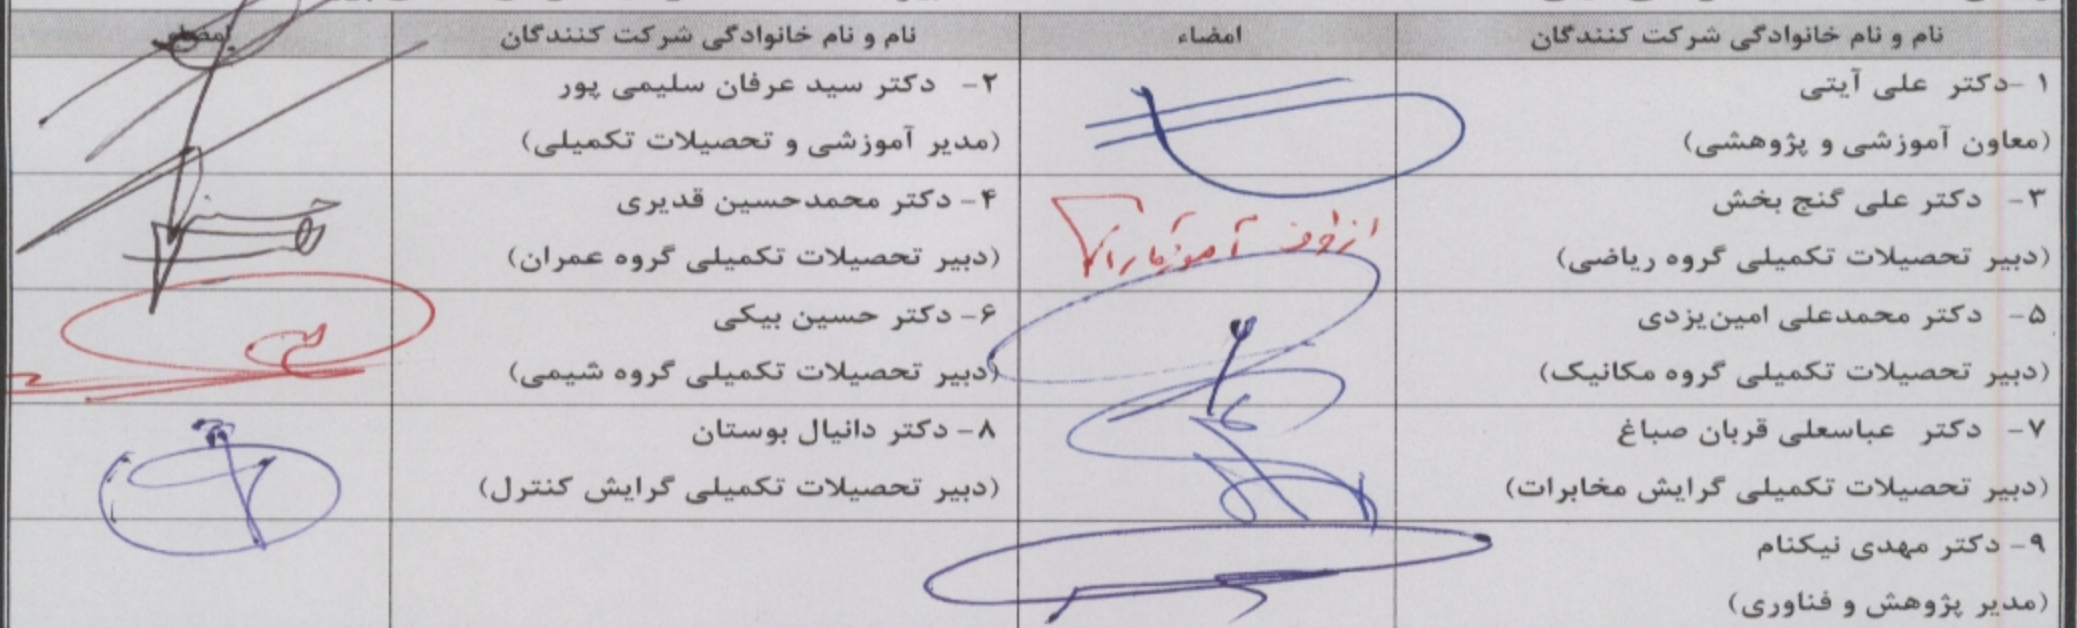 نام و نام خانوادگی شرکت کنندگان	امضاء	نام و نام خانوادگی شرکت کنندگان	امضاء
۱ -دکتر علی آیتی
(معاون آموزشی و پژوهشی)
۲- دکتر سید عرفان سلیمی پور
(مدیر آموزشی و تحصیلات تکمیلی)
۳- دکتر علی گنج بخش
(دبیر تحصیلات تکمیلی گروه ریاضی)
از طرف
۴- دکتر محمدحسین قدیری
(دبیر تحصیلات تکمیلی گروه عمران)
۵- دکتر محمدعلی امین‌یزدی
(دبیر تحصیلات تکمیلی گروه مکانیک)
۶- دکتر حسین بیکی
(دبیر تحصیلات تکمیلی گروه شیمی)
۷- دکتر عباسعلی قربان صباغ
(دبیر تحصیلات تکمیلی گرایش مخابرات)
۸- دکتر دانیال بوستان
(دبیر تحصیلات تکمیلی گرایش کنترل)
۹- دکتر مهدی نیکنام
(مدیر پژوهش و فناوری)